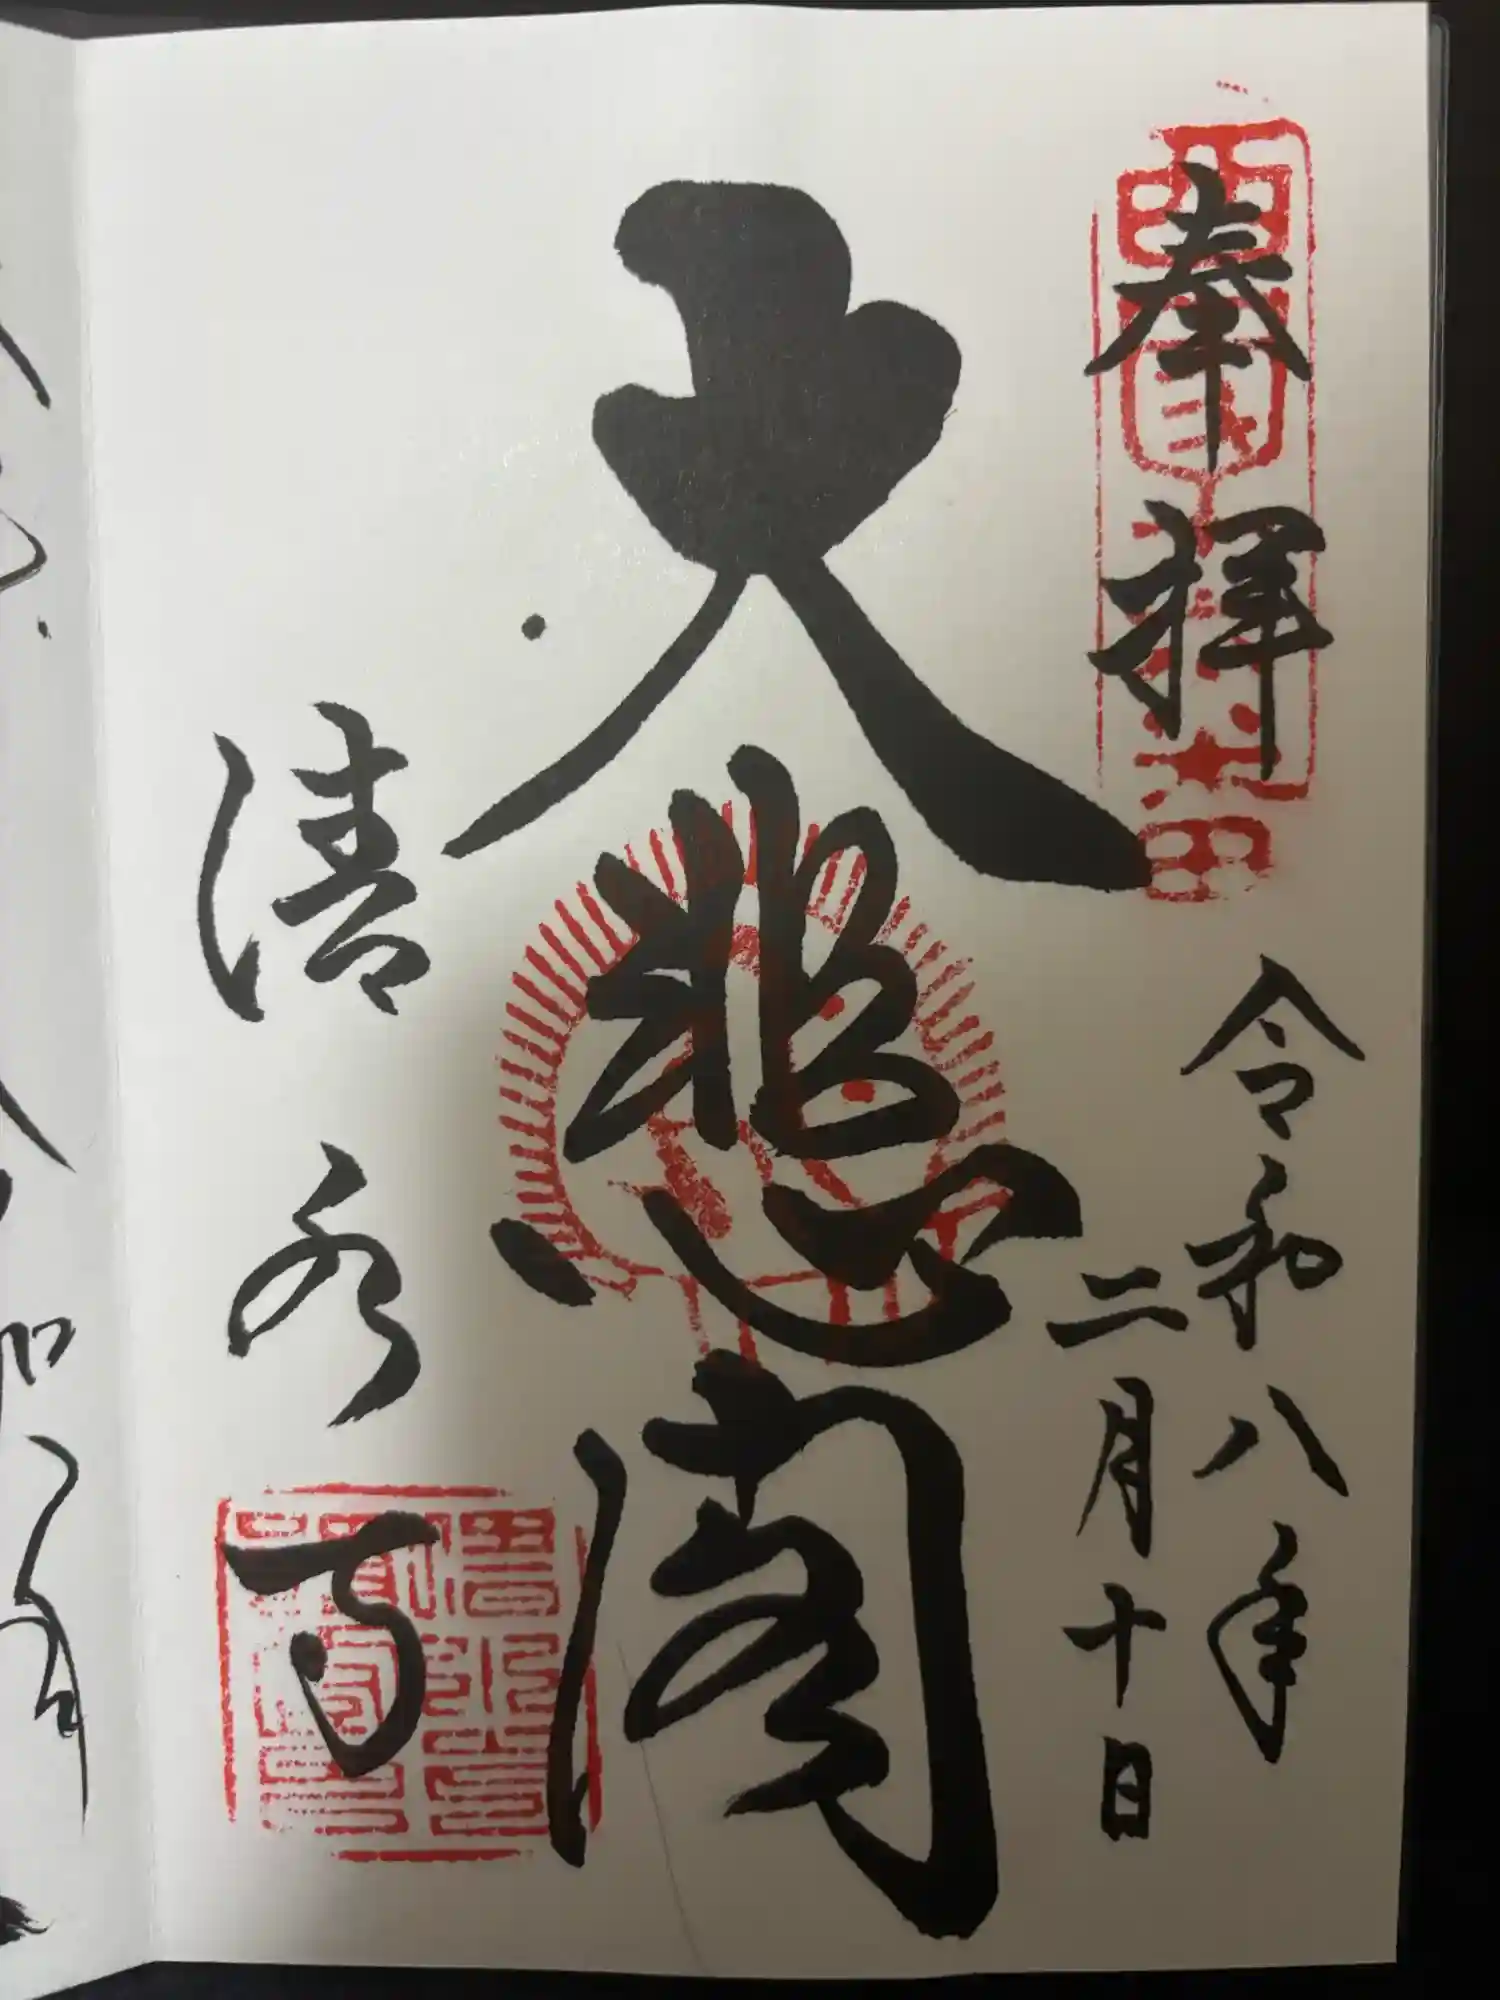 奉拝
令和八年
二月十日
大悲閣
清水寺